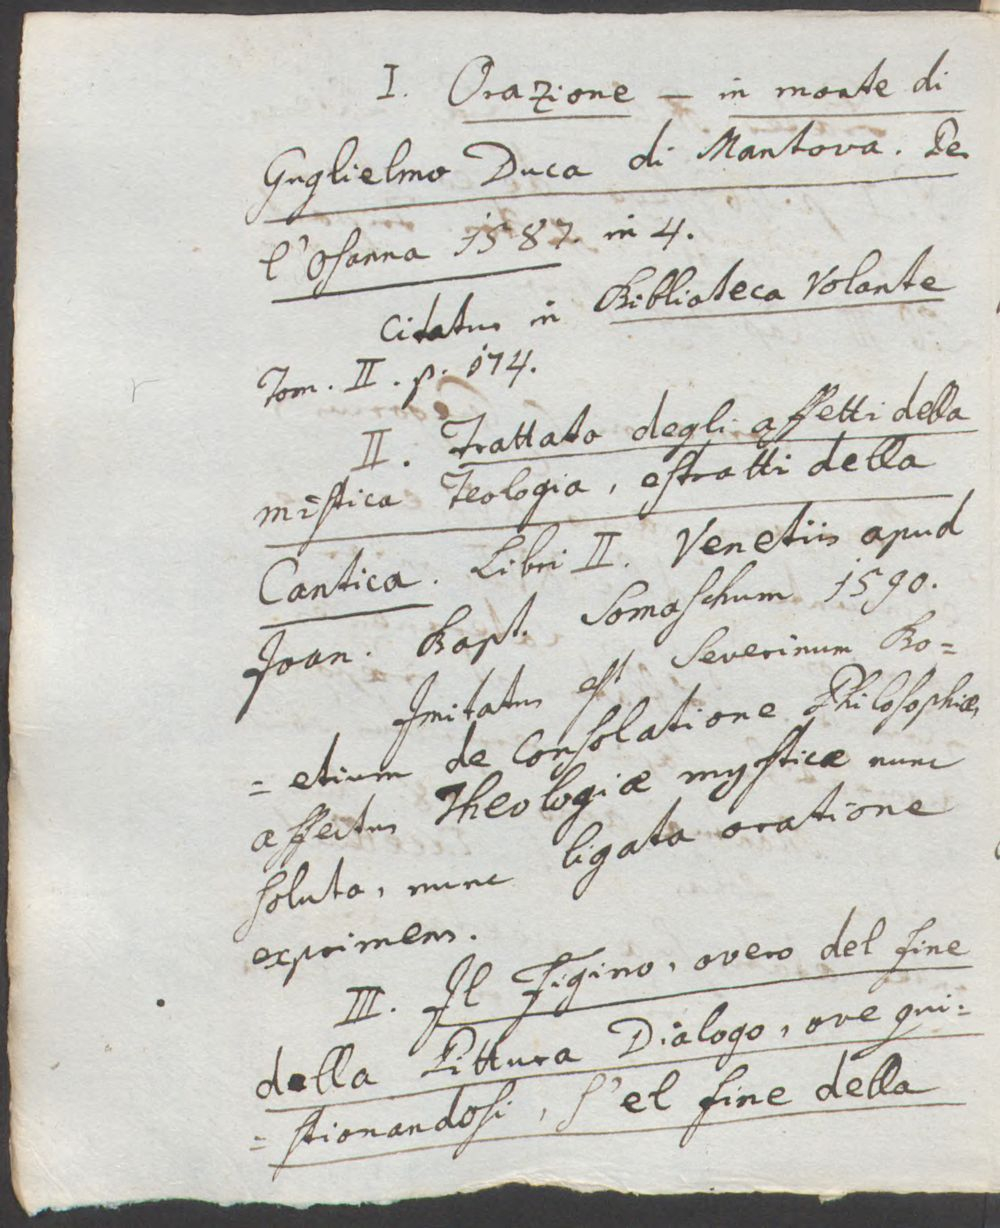 I. Orazione – in morte di
Guglielmo Duca di Mantova. Per
l'Osanna 1587. in 4.
Citatus in Biblioteca Volante
Tom. II. p. 174.
II. Trattato degli affetti della
mistica Teologia, estratti della
Cantica. Libri II. Venetiis apud
Joan. Bapt. Somaschum 1590.
Imitatus est Severinum Bo=
=etium de Consolatione Philosophiæ,
affectus Theologiæ mysticæ nunc
soluta, nunc ligata oratione
exprimens.
III. Il Figino, overo del fine
della Pittura Dialogo, ove qui=
=stionandosi, s'el fine della